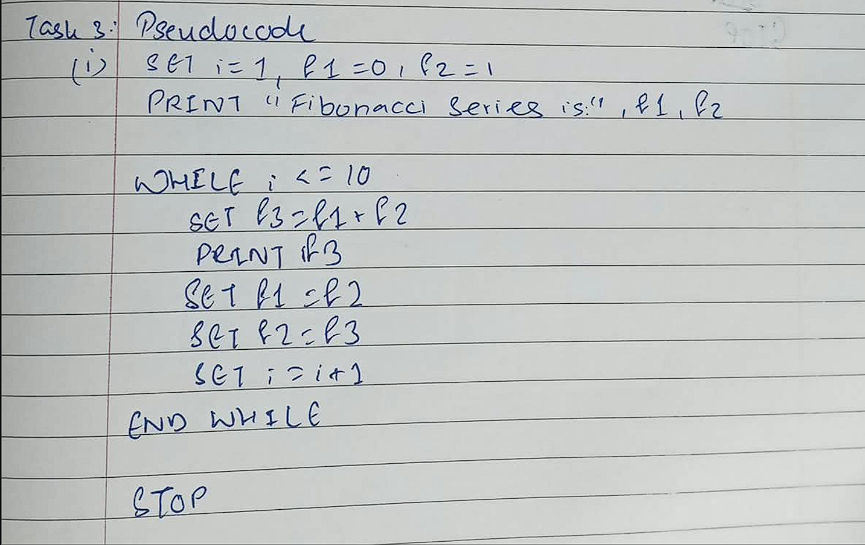 Task 3: Pseudocode
(i) SET i=1, f1=0, f2=1
PRINT "Fibonacci Series is:", f1, f2
WHILE i <= 10
SET f3=f1+f2
PRINT f3
SET f1=f2
SET f2=f3
SET i=i+1
END WHILE
STOP